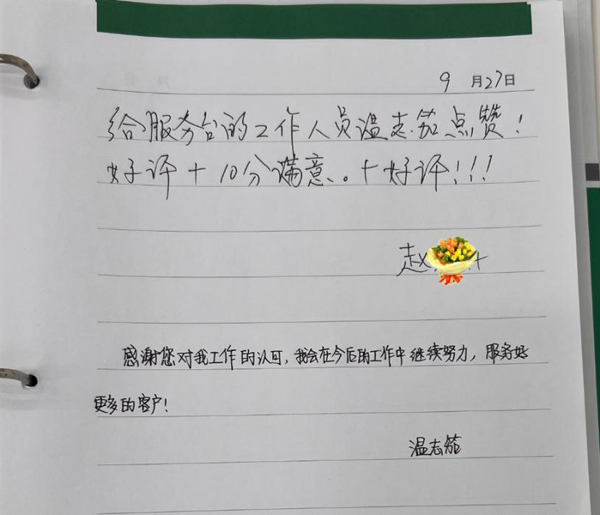 9月27日
给服务台的工作人员温志茹点赞!
好评+10分满意。+好评!!!
赵
感谢您对我工作的认可,我会在今后的工作中继续努力,服务好
更多的客户!
温志茹